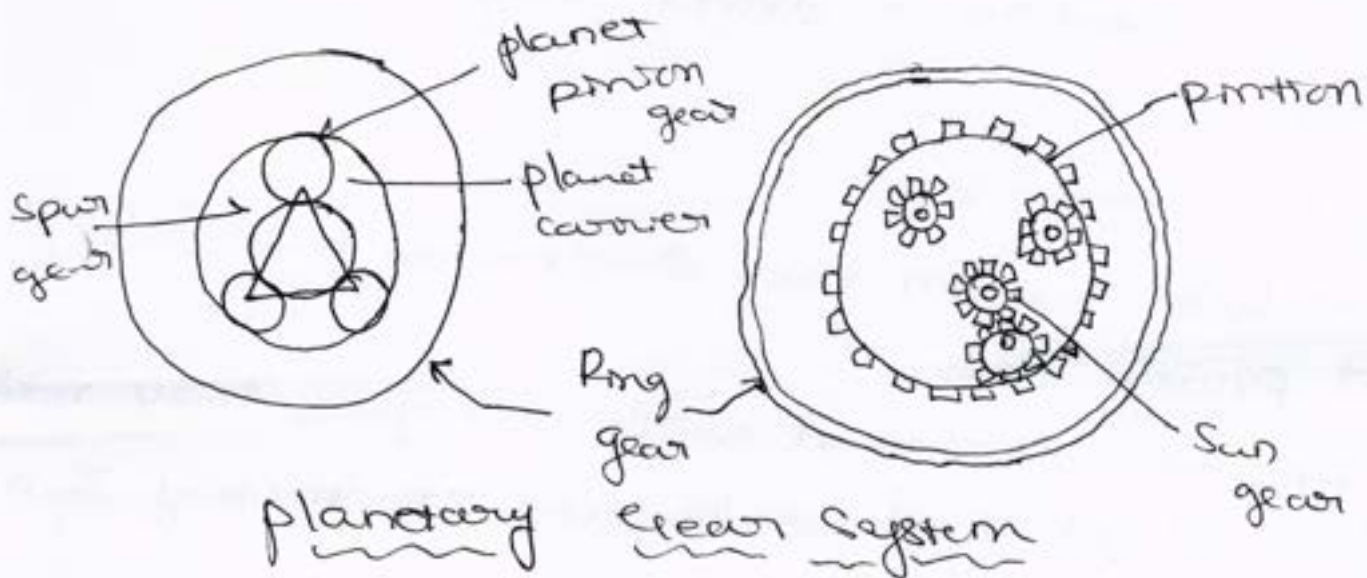 planet
pinion
gear
planet
carrier
Spur
gear
Ring
gear
pintion
Sun
gear
planetary Gear System